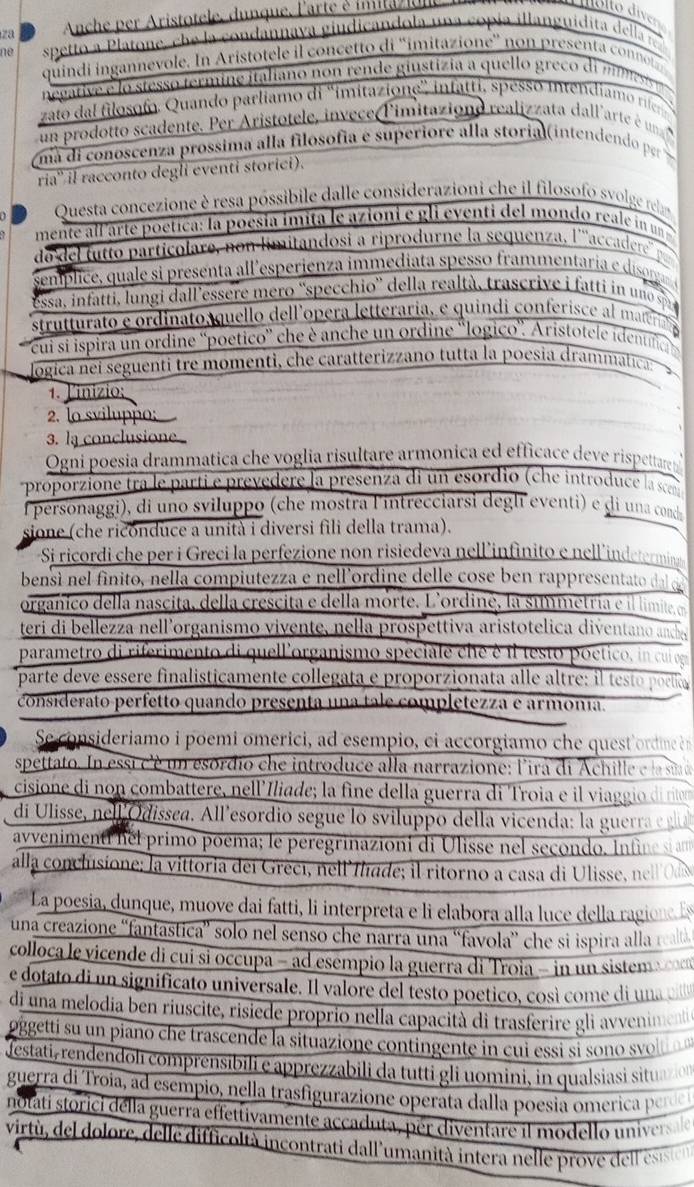 za Anche per Aristotele, dunque, l'arte è
ne spetto a Platone, che la condannava giudicandola una copia illanguidita della
quindi ingannevole. In Aristotele il concetto di "imitazione" non presenta
negative e lo stesso termine italiano non rende giustizia a quello greco di
zato dal filosofo. Quando parliamo di "imitazione", infatti, spesso intendiamo
un prodotto scadente. Per Aristotele, invece, l'imitazione realizzata dall'arte è
ma di conoscenza prossima alla filosofia e superiore alla storia (intendendo per
ria" il racconto degli eventi storici).
Questa concezione è resa possibile dalle considerazioni che il filosofo svolge
mente all'arte poetica: la poesia imita le azioni e gli eventi del mondo reale in un
do del tutto particolare, non limitandosi a riprodurne la sequenza, l'"accadere"
semplice, quale si presenta all'esperienza immediata spesso frammentaria e
essa, infatti, lungi dall'essere mero "specchio" della realtà, trascrive i fatti in uno
strutturato e ordinato, quello dell'opera letteraria, e quindi conferisce al
cui si ispira un ordine "poetico" che è anche un ordine "logico". Aristotele
logica nei seguenti tre momenti, che caratterizzano tutta la poesia drammatica:
1. l'inizio;
2. lo sviluppo;
3. la conclusione.
Ogni poesia drammatica che voglia risultare armonica ed efficace deve rispettare
proporzione tra le parti e prevedere la presenza di un esordio (che introduce la
i personaggi), di uno sviluppo (che mostra l'intrecciarsi degli eventi) e di una
sione (che riconduce a unità i diversi fili della trama).
Si ricordi che per i Greci la perfezione non risiedeva nell'infinito e
bensì nel finito, nella compiutezza e nell'ordine delle cose ben rappresentato dal
organico della nascita, della crescita e della morte. L'ordine, la simmetria e il limite,
teri di bellezza nell'organismo vivente, nella prospettiva aristotelica diventano anche
parametro di riferimento di quell'organismo speciale che è il testo poetico, in cui
parte deve essere finalisticamente collegata e proporzionata alle altre: il testo
considerato perfetto quando presenta una tale completezza e armonia.
Se consideriamo i poemi omerici, ad esempio, ci accorgiamo che quest'ordine è
spettato. In essi c'è un esordio che introduce alla narrazione: l'ira di Achille e la sua
cisione di non combattere, nell'Iliade; la fine della guerra di Troia e il viaggio di
di Ulisse, nell'Odissea. All'esordio segue lo sviluppo della vicenda: la guerra e gli
avvenimenti nel primo poema; le peregrinazioni di Ulisse nel secondo. Infine si
alla conclusione: la vittoria dei Greci, nell'Iliade; il ritorno a casa di Ulisse,
La poesia, dunque, muove dai fatti, li interpreta e li elabora alla luce della ragione.
una creazione "fantastica" solo nel senso che narra una "favola" che si ispira alla realtà,
colloca le vicende di cui si occupa – ad esempio la guerra di Troia – in un sistema
e dotato di un significato universale. Il valore del testo poetico, così come di una
di una melodia ben riuscite, risiede proprio nella capacità di trasferire gli avvenimenti
oggetti su un piano che trascende la situazione contingente in cui essi si sono svolti
festati, rendendoli comprensibili e apprezzabili da tutti gli uomini, in qualsiasi
guerra di Troia, ad esempio, nella trasfigurazione operata dalla poesia omerica perde
notati storici della guerra effettivamente accaduta, per diventare il modello universale
virtù, del dolore, delle difficoltà incontrati dall'umanità intera nelle prove